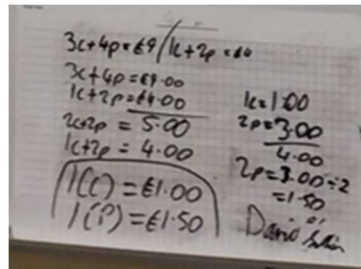 3c+4p=£9/1c+2p=£4
3c+4p=£9.00
1c+2p=£4.00
2c+2p=5.00
1c+2p=4.00
1(c)=£1.00
1(p)=£1.50
1c=1.00
2p=3.00
4.00
2p=3.00÷2
=1.50